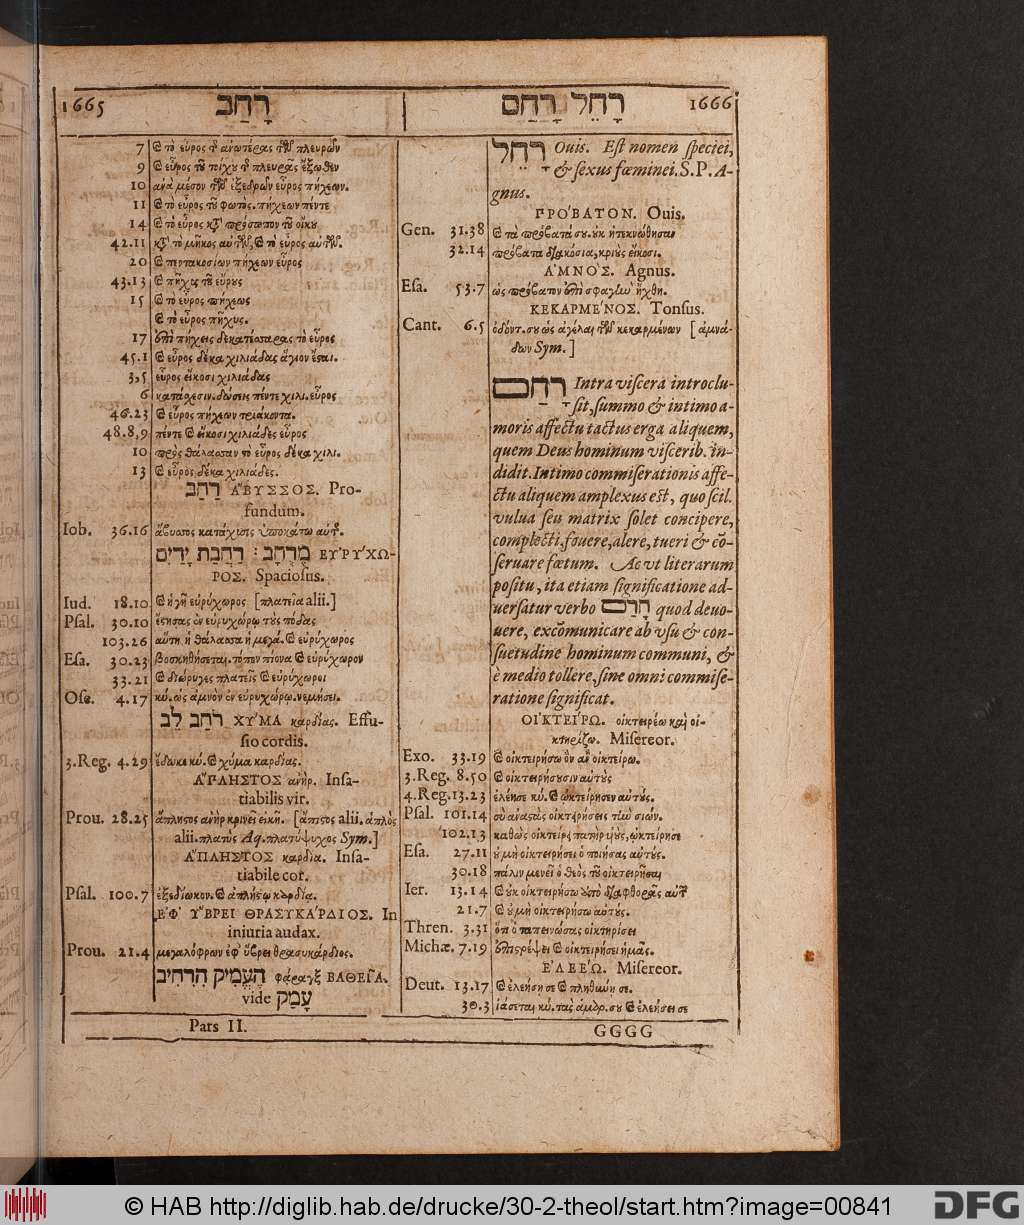 1665 רָחַב
7 & τὸ εὖρος τ͂ ἀνωτέρας τ͂ πλευρῶν
9 & εὖρος τοῦ τοίχου τ͂ πλευρᾶς ἔξωθεν
10 ἀνὰ μέσον τ͂ ἐξεδρῶν εὖρος πήχεων.
11 & τὸ εὖρος τοῦ φωτὸς. πήχεων πέντε
14 & τὸ εὖρος κτ̀ πρόσωπον τοῦ οἴκου
42.11 κτ̀ τὸ μῆκος αὐτῶν, & τὸ εὖρος αὐτῶν.
20 & πεντακοσίων πήχεων εὖρος
43.13 & πῆχις τοῦ εὔρους
15 & τὸ εὖρος πήχεως
& τὸ εὖρος πῆχυς.
17 ἐπὶ πήχεις δεκατέσσαρας τὸ εὖρος
45.1 & εὖρος δέκα χιλιάδας ἅγιον ἔσται.
3,5 εὖρος εἴκοσι χιλιάδας
6 κατάσχεσιν. δώσεις πέντε χιλι. εὖρος
46.23 & εὖρος πήχεων τριάκοντα.
48.8,9 πέντε & εἴκοσι χιλιάδες εὖρος
10 πρὸς θάλασσαν τὸ εὖρος δέκα χιλι.
13 & εὖρος δέκα χιλιάδες.
רָחַב ἌΒΥΣΣΟΣ. Pro-
fundum.
Iob. 36.16 ἄβυσσος κατάχυσις ὑποκάτω αὐτ͂.
מֶרְחָב : רַחֲבַת יָדַיִם ΕΥ̓ΡΎΧΩ-
ΡΟΣ. Spaciosus.
Iud. 18.10 & ἡ γῆ εὐρύχωρος [πλατεῖα alii.]
Psal. 30.10 ἔστησας ἐν εὐρυχώρῳ τοὺς πόδας
103.26 αὕτη ἡ θάλασσα ἡ μεγά. & εὐρύχωρος
Esa. 30.23 βοσκηθήσεται. τόπον πίονα & εὐρύχωρον
33.21 & διώρυγες πλατεῖς & εὐρύχωροι
Ose. 4.17 κύ. ὡς ἀμνὸν ἐν εὐρυχώρῳ. νεμήσει.
רֹחַב לֵב ΧΥ͂ΜΑ καρδίας. Effu-
sio cordis.
3.Reg. 4.29 ἔδωκε κύ. & χύμα καρδίας.
ἌΠΛΗΣΤΟΣ ἀνὴρ. Insa-
tiabilis vir.
Prou. 28.25 ἄπληστος ἀνὴρ κρινεῖ εἰκῆ. [ἄπιστος alii. ἁπλὸς
alii. πλατὺς Aq. πλατύψυχος Sym.]
ἌΠΛΗΣΤΟΣ καρδία. Insa-
tiabile cor.
Psal. 100.7 ἐξεδίωκον. & ἀπλήστῳ καρδία.
ἘΦ' ὝΒΡΕΙ ΘΡΑΣΥΚΆΡΔΙΟΣ. In
iniuria audax.
Prou. 21.4 μεγαλόφρων ἐφ' ὕβρει θρασυκάρδιος.
הֶעֱמִיק הִרְחִיב φάραγξ ΒΑΘΕΙ͂Α.
vide עָמַק
Pars II.
רָחֵל רָחַם 1666
רָחֵל Ouis. Est nomen speciei,
& sexus fœminei. S.P. A-
gnus.
ΠΡΌΒΑΤΟΝ. Ouis.
Gen. 31.38 & τὰ πρόβατά σου. οὐκ ἠτεκνώθησαν
32.14 πρόβατα διακόσια, κριοὺς εἴκοσι.
ἈΜΝῸΣ. Agnus.
Esa. 53.7 ὡς πρόβατον ἐπὶ σφαγὴν ἤχθη.
ΚΕΚΑΡΜΈΝΟΣ. Tonsus.
Cant. 6.5 ὀδόντ. σου ὡς ἀγέλαι τ͂ κεκαρμένων [ἀμνά-
δων Sym.]
רָחַם Intra viscera introclu-
sit, summo & intimo a-
moris affectu tactus erga aliquem,
quem Deus hominum viscerib. in-
didit. Intimo commiserationis affe-
ctu aliquem amplexus est, quo scil.
vulua seu matrix solet concipere,
complecti, fouere, alere, tueri & cō-
seruare fœtum. Ac vt literarum
positu, ita etiam significatione ad-
uersatur verbo חָרַם quod deuo-
uere, excōmunicare ab vsu & con-
suetudine hominum communi, &
è medio tollere, sine omni commise-
ratione significat.
ΟἸΚΤΕΊΡΩ. οἰκτειρέω καὶ οἰ-
κτηρίζω. Misereor.
Exo. 33.19 & οἰκτειρήσω ὃν ἂν οἰκτείρω.
3.Reg. 8.50 & οἰκτειρήσουσιν αὐτοὺς
4.Reg. 13.23 ἐλέησε κύ. & ᾠκτείρησεν αὐτούς.
Psal. 101.14 σὺ ἀναστὰς οἰκτειρήσεις τὴν σιών.
102.13 καθὼς οἰκτείρει πατὴρ υἱοὺς, ᾠκτείρησε
Esa. 27.11 οὐ μὴ οἰκτειρήσει ὁ ποιήσας αὐτούς.
30.18 πάλιν μενεῖ ὁ θεὸς τοῦ οἰκτειρῆσαι
Ier. 13.14 & οὐκ οἰκτειρήσω ἀπὸ διαφθορᾶς αὐτ͂
21.7 & οὐ μὴ οἰκτειρήσω αὐτούς.
Thren. 3.31 ὅτι ὁ ταπεινώσας οἰκτηρίσει
Michæ. 7.19 ἐπιστρέψει & οἰκτειρήσει ἡμᾶς.
ἘΛΕΈΩ. Misereor.
Deut. 13.17 & ἐλεήσῃ σε & πληθυνῆ σε.
30.3 ἰάσεται κύ. τὰς ἁμαρ. σου & ἐλεήσει σε
GGGG
© HAB http://diglib.hab.de/drucke/30-2-theol/start.htm?image=00841
DFG